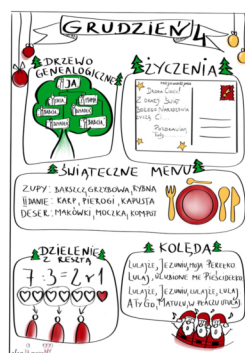 GRUDZIEŃ 4
DRZEWO
GENEALOGICZNE
JA
OJCIEC
MAMA
BABCIA
DZIADEK
DZIADEK
BABCIA
ŻYCZENIA
Droga Ciociu!
Z okazji Świąt
Bożego Narodzenia
życzę Ci...
Pozdrawiam,
ŚWIĄTECZNE MENU
ZUPY: BARSZCZ, GRZYBOWA, RYBNA
II DANIE: KARP, PIEROGI, KAPUSTA
DESER: MAKÓWKI, MOCZKA, KOMPOT
DZIELENIE
Z RESZTĄ
7:3=2 r 1
KOLĘDA
LULAJŻE, JEZUNIU, MOJA PEREŁKO
LULAJ, ULUBIONE ME PIEŚCIDEŁKO
LULAJŻE, JEZUNIU, LULAJŻE, LULAJ
A TY GO, MATULU, W PŁACZU UTULAJ